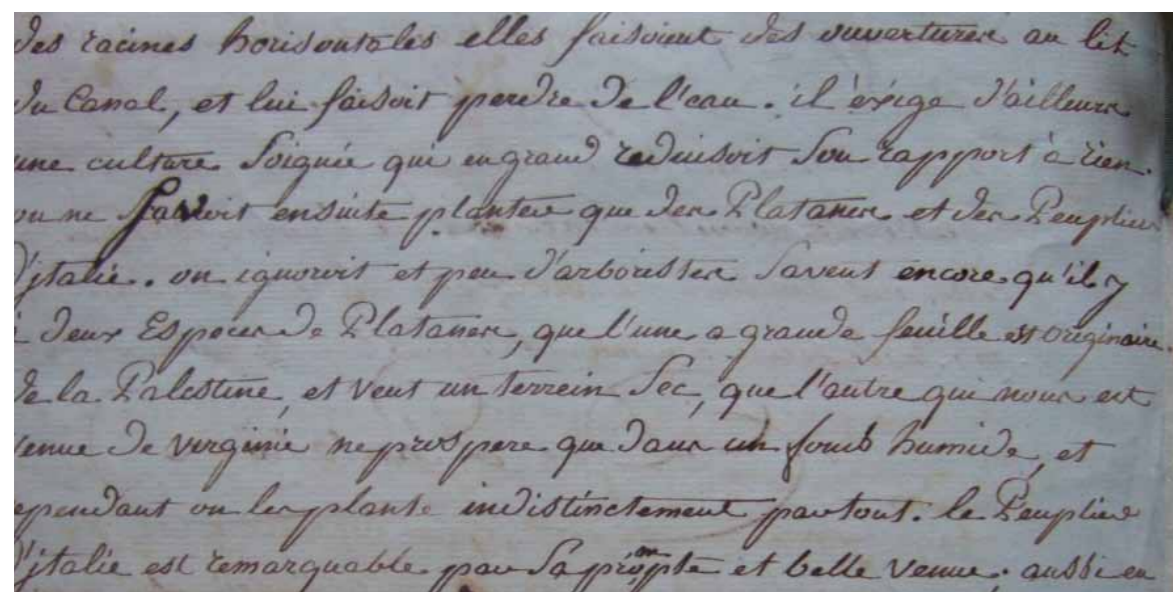 des racines horisontales elles faisoient des ouvertures au lit
du Canal, et lui faisoit perdre de l'eau. il éxige d'ailleurs
une culture Soignée qui en grand reduisoit Son rapport à rien.
on ne Savoit ensuite planter que des Platanes et des Peupliers
d'italie. on ignoroit et peu d'arboristes Savent encore qu'il y
a deux Especes de Platanes, que l'une a grande feuille est originaire
de la Palestine, et veut un terrein Sec, que l'autre qui nous est
venue de virginie ne prospere que dans un fond humide, et
cependant on les plante indistinctement partout. le Peuplier
d'italie est remarquable par Sa prompte et belle venue. aussi en